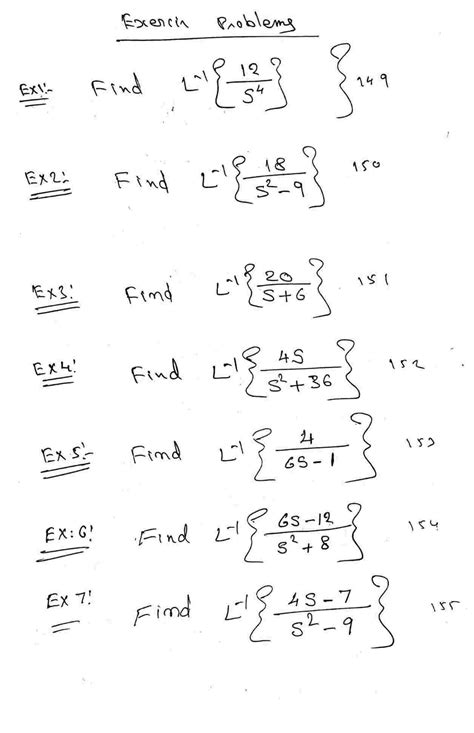 Exercise Problems
Ex1:- Find L⁻¹{12/S⁴} } 149
Ex2: Find L⁻¹{18/(S²-9)} 150
Ex3: Find L⁻¹{20/(S+6)} 151
Ex4: Find L⁻¹{4S/(S²+36)} 152
Ex 5:- Find L⁻¹{4/(6S-1)} 153
Ex:6: Find L⁻¹{(6S-12)/(S²+8)} 154
Ex 7: Find L⁻¹{(4S-7)/(S²-9)} 155